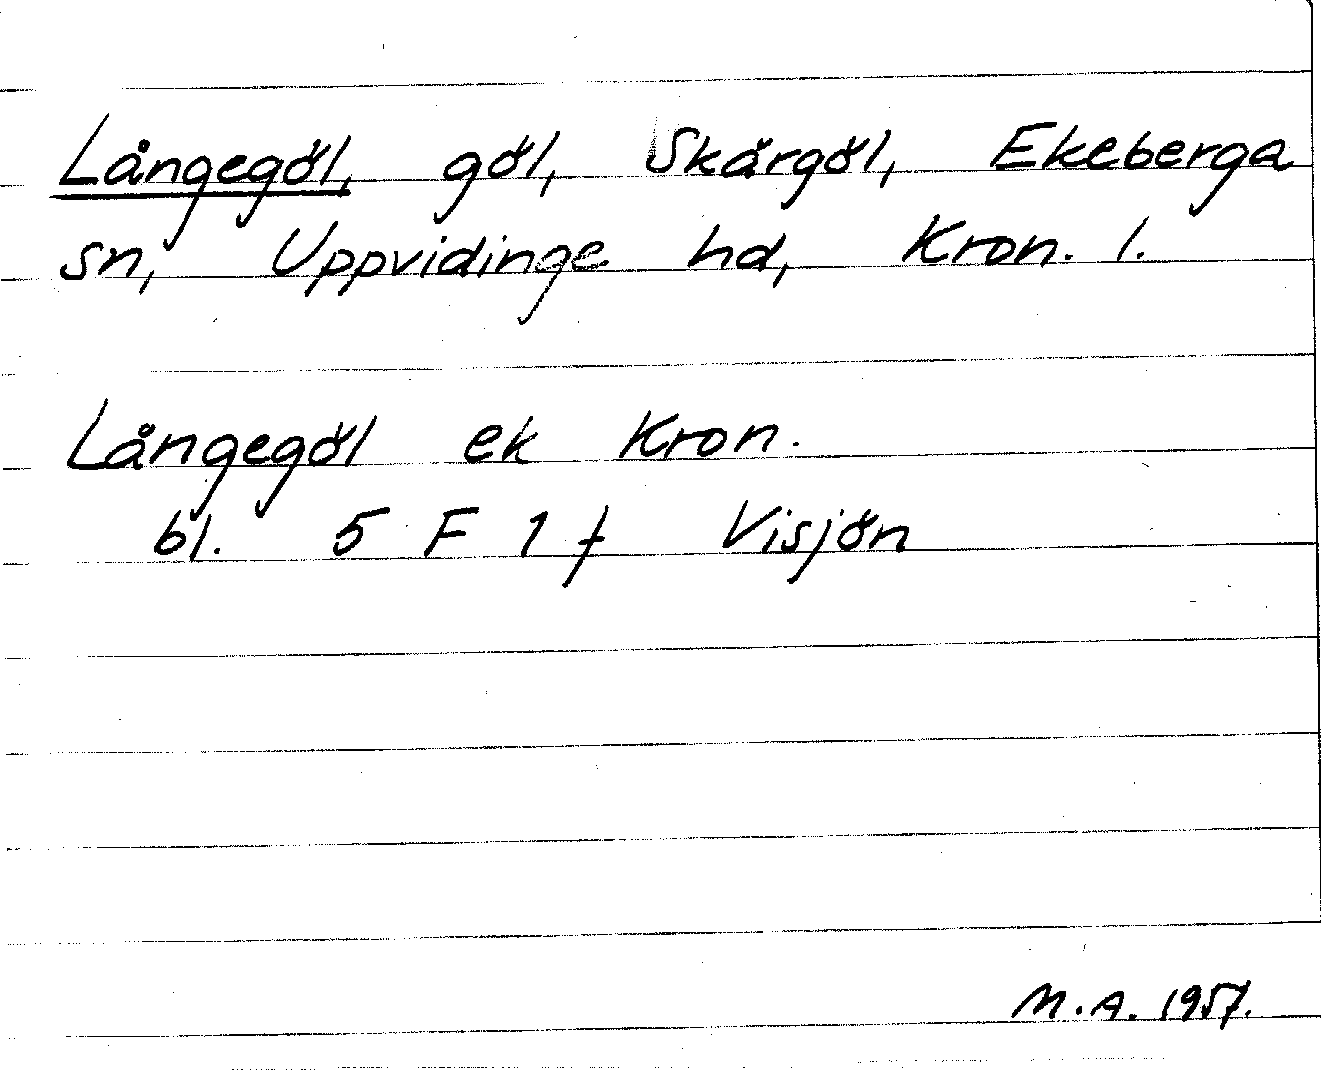 Långegöl, göl, Skärgöl, Ekeberga
sn, Uppvidinge hd, Kron. l.
Långegöl ek Kron.
bl. 5 F 1 f Visjön
M.A. 1957.